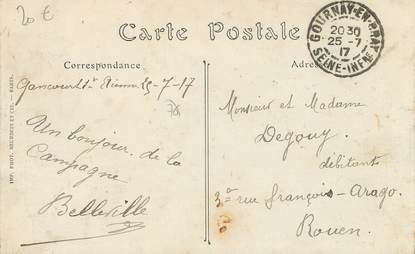 20 €
Carte Postale
GOURNAY-EN-BRAY
2030
25-7
17
SEINE-INFRE
Correspondance
Adres
Gancourt St Etienne 25-7-17
78
Un bonjour de la
Campagne
Belleville
Monsieur et Madame
Degouy
débitants
3 rue françois-Arago.
Rouen.